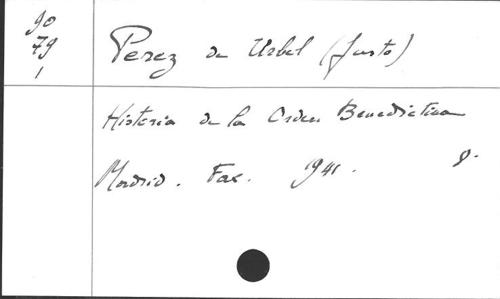 90
79
1
Perez de Urbel (Justo)
Historia de la Orden Benedictina
Madrid. Fax. 1941. 8.